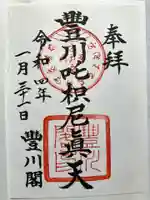 奉拝
豊川吒枳尼眞天
令和四年
一月二十一日
豊川閣